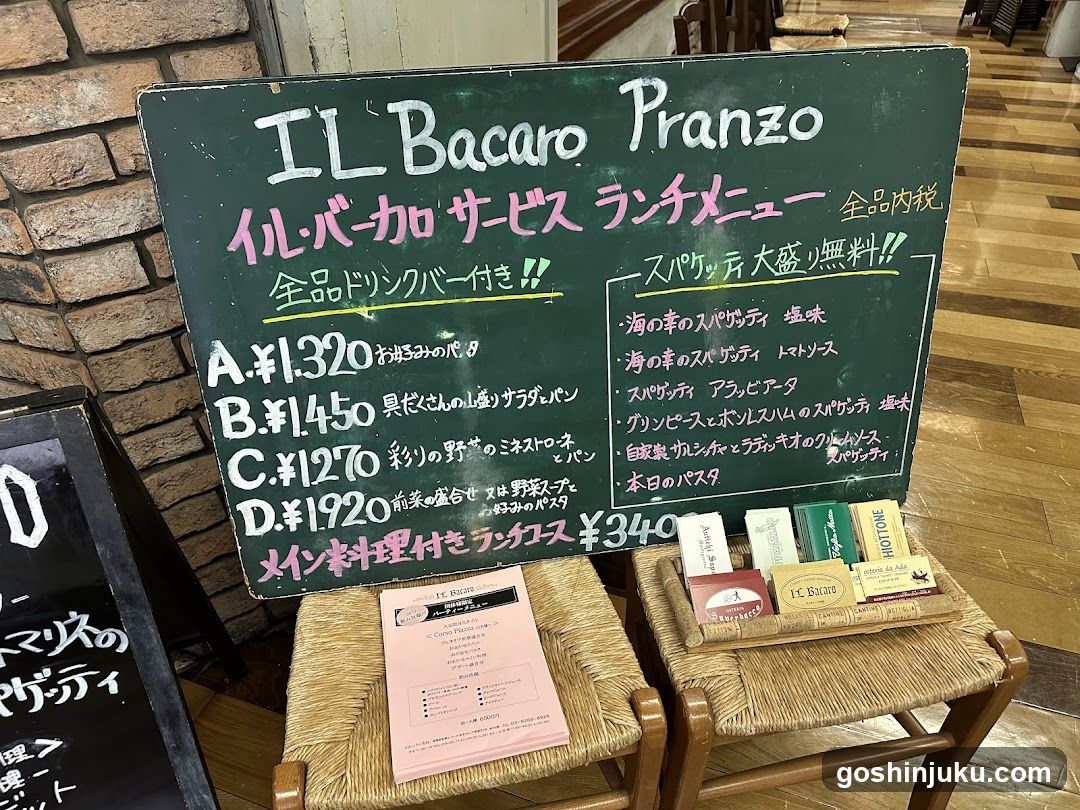 IL Bacaro Pranzo
イル・バーカロ サービス ランチメニュー 全品内税
全品ドリンクバー付き!!
A.¥1.320 お好みのパスタ
B.¥1.450 具だくさんの山盛りサラダとパン
C.¥1270 彩りの野菜のミネストローネ
とパン
D.¥1.920 前菜の盛合せ 又は野菜スープと
お好みのパスタ
メイン料理付きランチコース ¥340
スパゲッティ大盛り無料!!
・海の幸のスパゲッティ 塩味
・海の幸のスパゲッティ トマトソース
・スパゲッティ アラッビアータ
・グリンピースとボンレスハムのスパゲッティ 塩味
・自家製サルシッチャとラディッキオのクリームソース
スパゲッティ
・本日のパスタ
マリネの
パゲッティ
IL Bacaro
パーティーメニュー
< Corso Piazza
飲み放題
6500円
TEL 03-5269-8528
HIOTTONE
Osteria da Ada
OSTERIA
IL Bacaro
goshinjuku.com